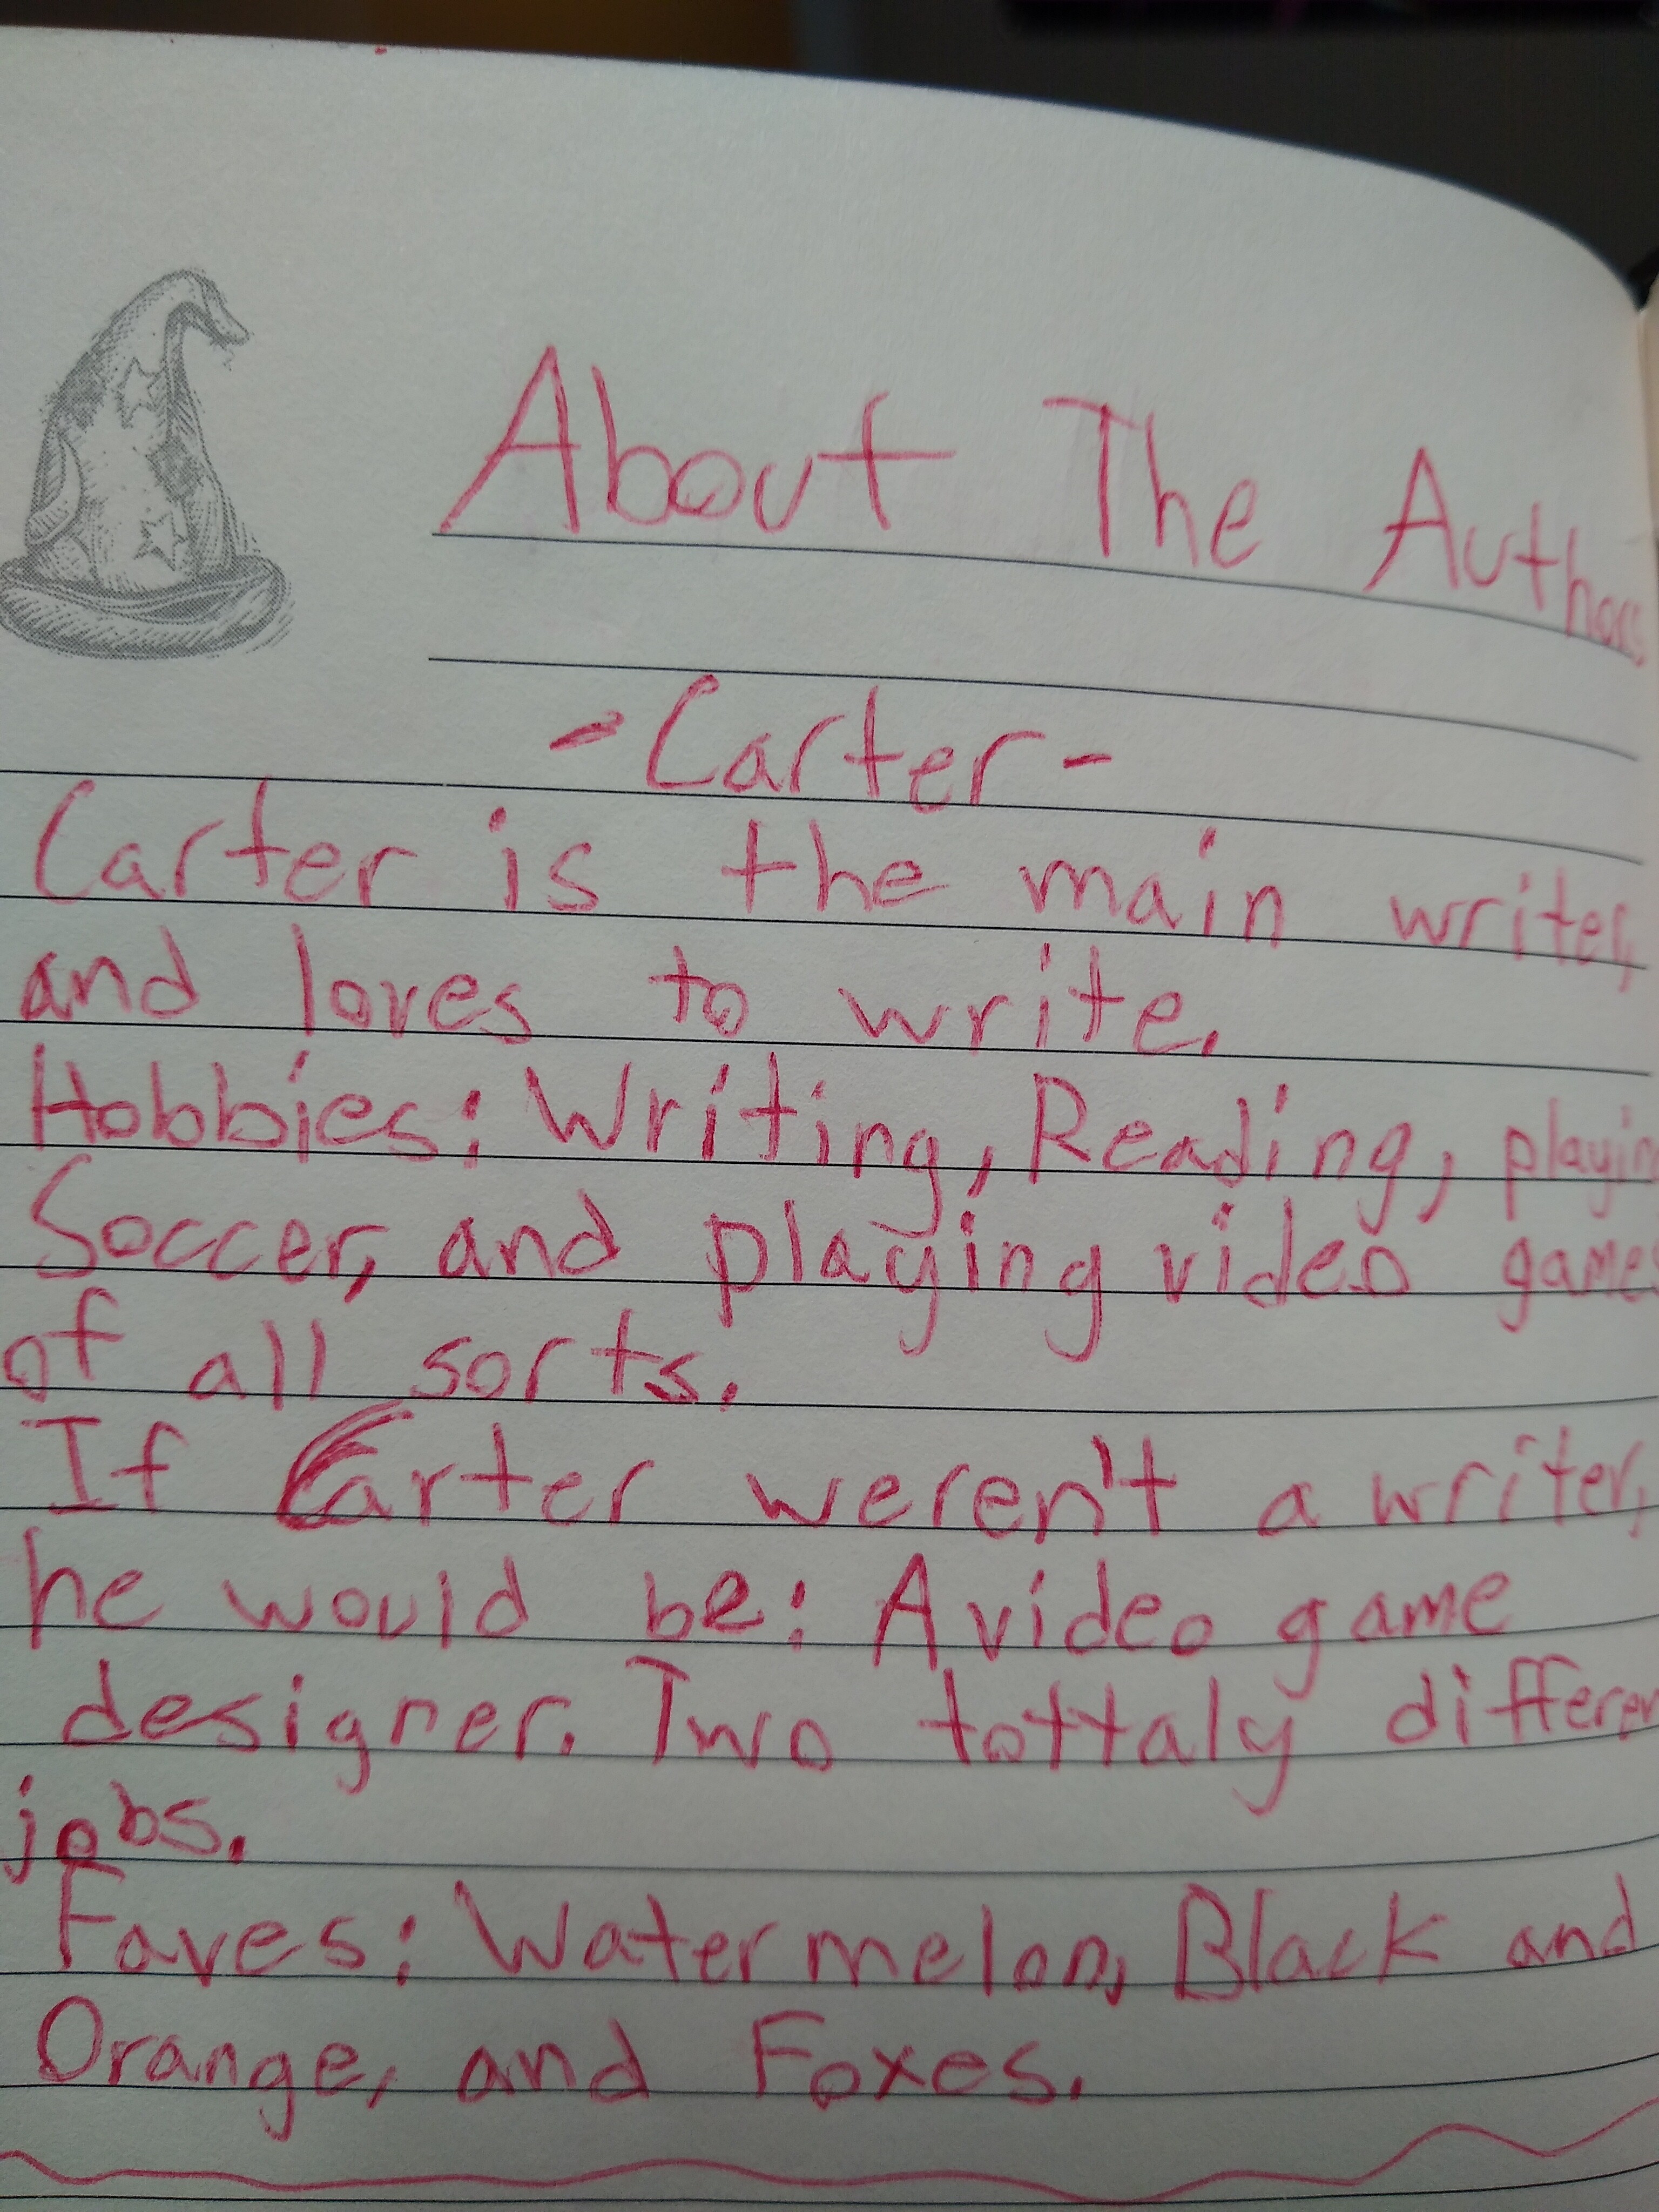 About The Authors
-Carter-
Carter is the main writer,
and loves to write.
Hobbies: Writing, Reading, playing
Soccer, and playing video games
of all sorts.
If Carter weren't a writer,
he would be: A video game
designer. Two tottaly different
jobs.
Faves: Watermelon, Black and
Orange, and Foxes.